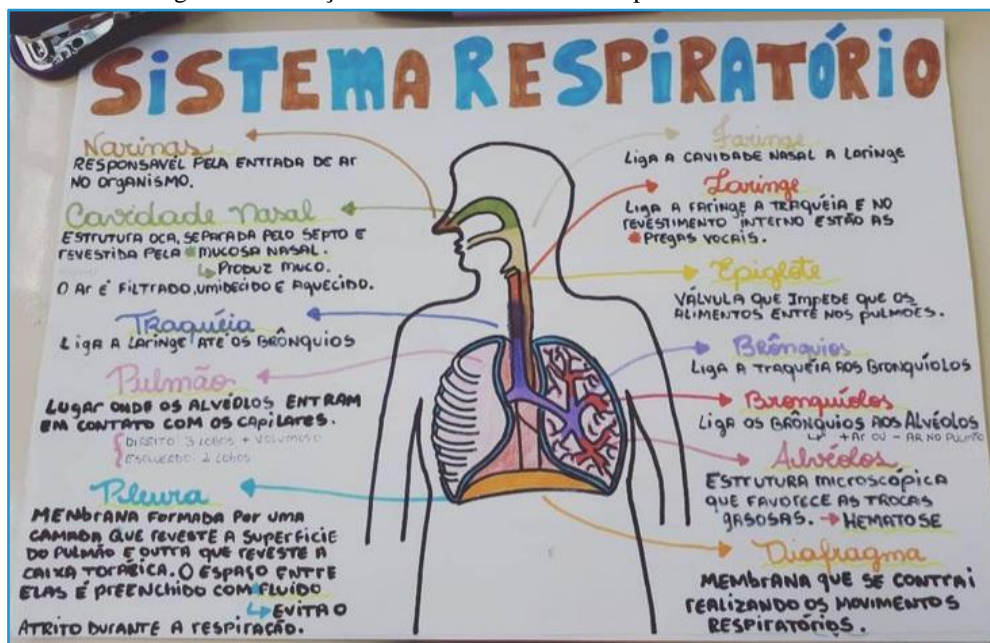 SISTEMA RESPIRATÓRIO
Narinas
RESPONSAVÉL PELA ENTRADA DE AR
NO ORGANISMO.
Cavidade Nasal
ESTRUTURA OCA, SEPARADA PELO SEPTO E
REVESTIDA PELA * MUCOSA NASAL.
↳ PRODUZ MUCO.
O AR É FILTRADO, UMIDECIDO E AQUECIDO.
Traquéia
LIGA A LARINGE ATÉ OS BRÔNQUIOS
Pulmão
LUGAR ONDE OS ALVÉOLOS ENTRAM
EM CONTATO COM OS CAPILARES.
DIREITO: 3 LOBOS + VOLUMOSO
ESQUERDO: 2 LOBOS
Pleura
MENBRANA FORMADA POR UMA
CAMADA QUE REVESTE A SUPERFÍCIE
DO PULMÃO E OUTRA QUE REVESTE A
CAIXA TORÁCICA. O ESPAÇO ENTRE
ELAS É PREENCHIDO COM FLUÍDO
↳ EVITA O
ATRITO DURANTE A RESPIRAÇÃO.
Faringe
LIGA A CAVIDADE NASAL A LARINGE
Laringe
LIGA A FARINGE A TRAQUÉIA E NO
REVESTIMENTO INTERNO ESTÃO AS
* PREGAS VOCAIS.
Epiglote
VÁLVULA QUE IMPEDE QUE OS
ALIMENTOS ENTRE NOS PULMÕES.
Brônquios
LIGA A TRAQUÉIA AOS BRONQUÍOLOS
Bronquíolos
LIGA OS BRÔNQUIOS AOS ALVÉOLOS
↳ + AR OU - AR NO PULMÃO
Alvéolos
ESTRUTURA MICROSCÓPICA
QUE FAVORECE AS TROCAS
GASOSAS. → HEMATOSE
Diafragma
MEMBRANA QUE SE CONTRAI
REALIZANDO OS MOVIMENTOS
RESPIRATÓRIOS.